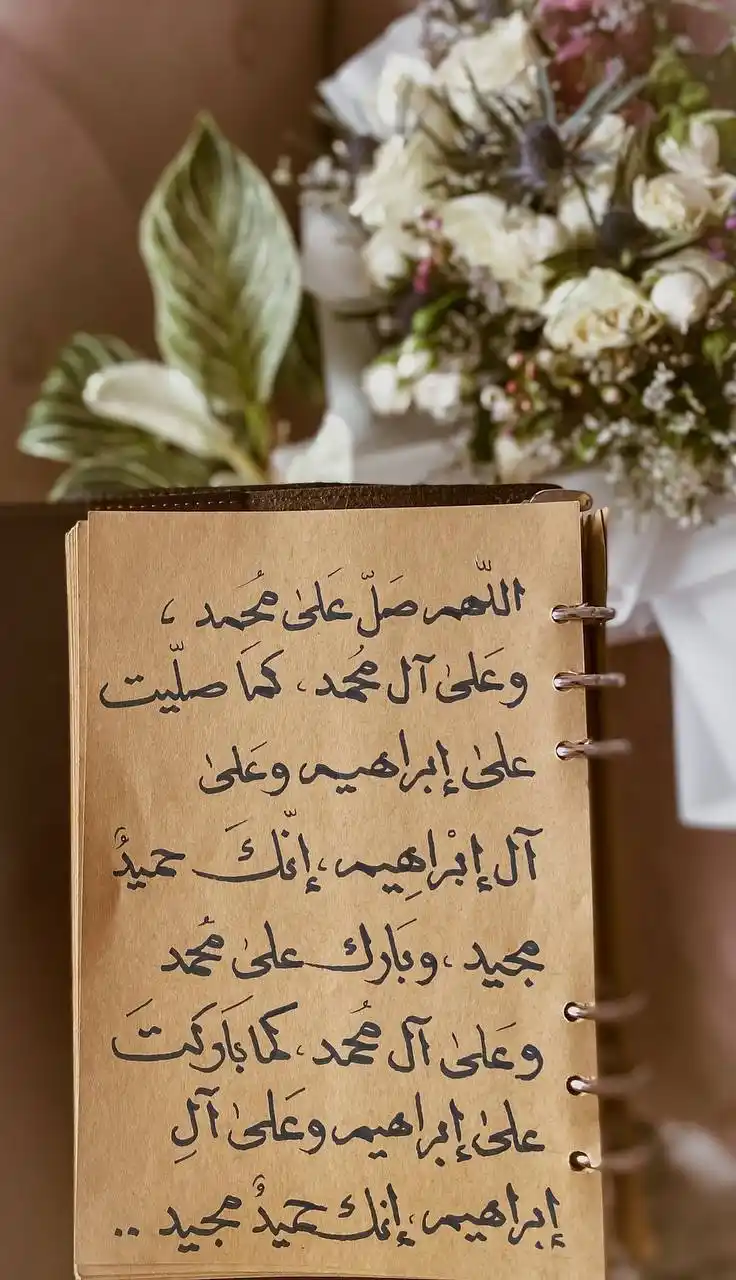 اللّهم صَلّ عَلىٰ محُمد ،
وعَلىٰ آل محُمد، كمَا صلّيت
علىٰ إبراهيم وعَلىٰ
آل إبْراهِيم، إنّكَ حميدٌ
مجيد، وبَارك علىٰ محُمد
وعَلىٰ آل محُمد، كما بَاركَتَ
علىٰ إبراهيم وعَلىٰ آلِ
إبراهيم، إنك حميدٌ مجيد ..